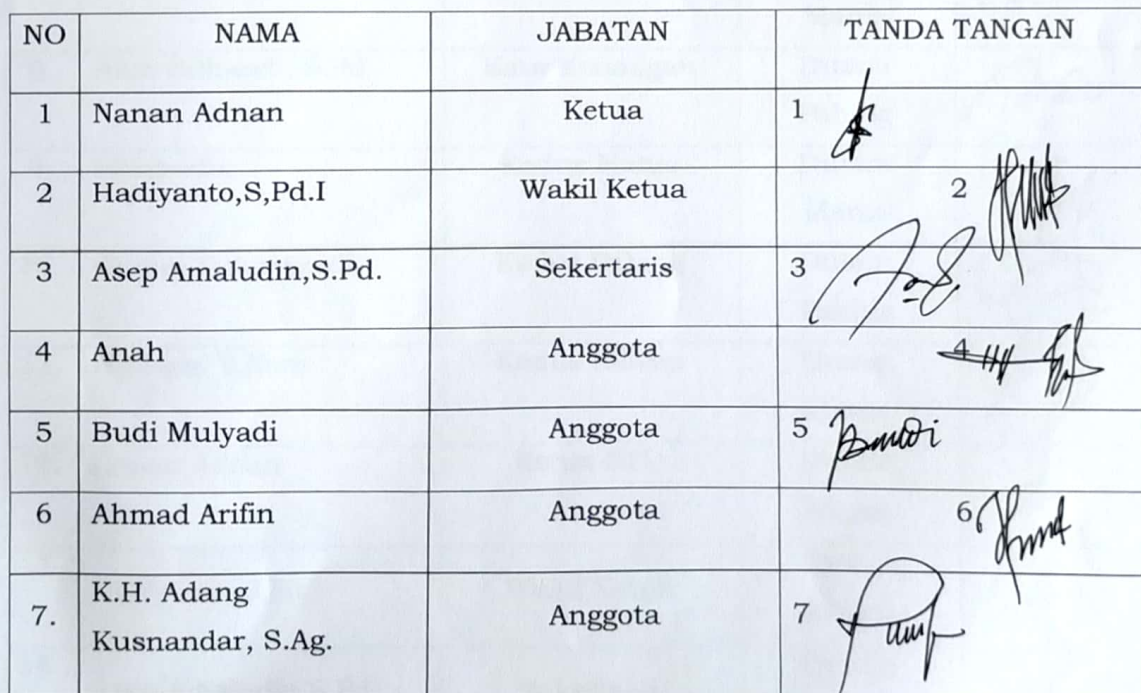 NO NAMA JABATAN TANDA TANGAN
1 Nanan Adnan Ketua 1
2 Hadiyanto,S,Pd.I Wakil Ketua 2
3 Asep Amaludin,S.Pd. Sekertaris 3
4 Anah Anggota 4
5 Budi Mulyadi Anggota 5
6 Ahmad Arifin Anggota 6
7. K.H. Adang
Kusnandar, S.Ag. Anggota 7